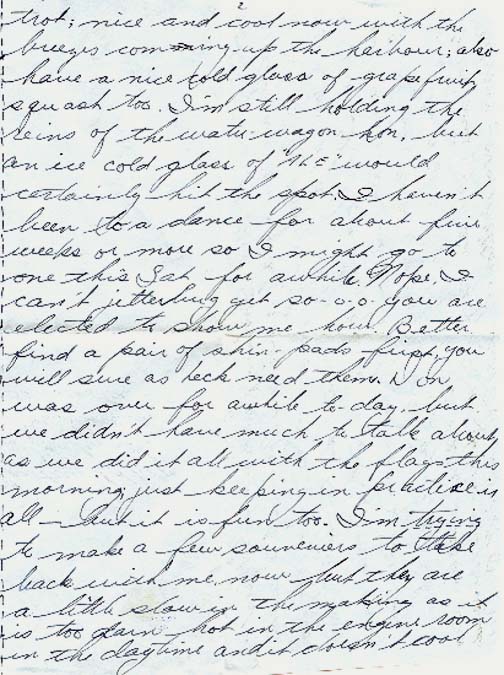 2
trot; nice and cool now with the
breezes coming up the harbour; also
have a nice cold glass of grapefruit
squash too. I'm still holding the
reins of the water wagon hon, but
an ice cold glass of "ALE" would
certainly hit the spot. I haven't
been to a dance for about five
weeks or more so I might go to
one this Sat for awhile. Nope, I
can't jitterbug yet so-o-o-o you are
elected to show me how. Better
find a pair of shin-pads first, you
will sure as heck need them. Don
was over for awhile to-day, but
we didn't have much to talk about
as we did it all with the flags this
morning, just keeping in practice is
all – but it is fun too. I'm trying
to make a few souveniers to take
back with me now but they are
a little slow in the making as it
is too darn hot in the engine room
in the daytime and it doesn't cool